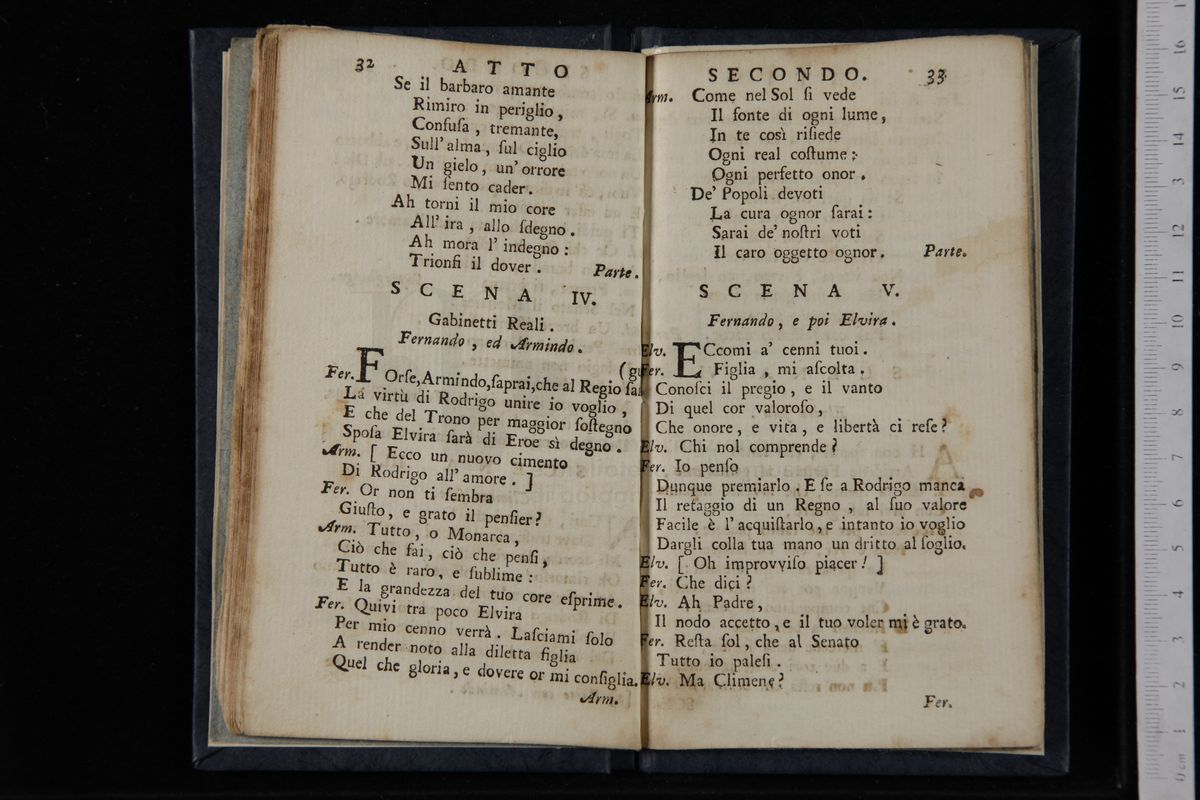 32 ATTO
Se il barbaro amante
Rimiro in periglio,
Confuſa, tremante,
Sull' alma, ſul ciglio
Un gielo, un' orrore
Mi ſento cader.
Ah torni il mio core
All' ira, allo ſdegno.
Ah mora l' indegno:
Trionfi il dover. Parte.
SCENA IV.
Gabinetti Reali.
Fernando, ed Armindo.
(gu
Fer. FOrſe, Armindo, ſaprai, che al Regio ſan
La virtù di Rodrigo unire io voglio,
E che del Trono per maggior ſoſtegno
Spoſa Elvira ſarà di Eroe sì degno.
Arm. [ Ecco un nuovo cimento
Di Rodrigo all' amore. ]
Fer. Or non ti ſembra
Giuſto, e grato il penſier?
Arm. Tutto, o Monarca,
Ciò che fai, ciò che penſi,
Tutto è raro, e ſublime:
E la grandezza del tuo core eſprime.
Fer. Quivi tra poco Elvira
Per mio cenno verrà. Laſciami ſolo
A render noto alla diletta figlia
Quel che gloria, e dovere or mi conſiglia.
Arm.
SECONDO. 33
Arm. Come nel Sol ſi vede
Il fonte di ogni lume,
In te così riſiede
Ogni real coſtume;
Ogni perfetto onor.
De' Popoli devoti
La cura ognor ſarai:
Sarai de' noſtri voti
Il caro oggetto ognor. Parte.
SCENA V.
Fernando, e poi Elvira.
Elv. ECcomi a' cenni tuoi.
Fer. Figlia, mi aſcolta.
Conoſci il pregio, e il vanto
Di quel cor valoroſo,
Che onore, e vita, e libertà ci reſe?
Elv. Chi nol comprende?
Fer. Io penſo
Dunque premiarlo. E ſe a Rodrigo manca
Il retaggio di un Regno, al ſuo valore
Facile è l' acquiſtarlo, e intanto io voglio
Dargli colla tua mano un dritto al ſoglio.
Elv. [ Oh improvviſo piacer! ]
Fer. Che dici?
Elv. Ah Padre,
Il nodo accetto, e il tuo voler mi è grato.
Fer. Reſta ſol, che al Senato
Tutto io paleſi.
Elv. Ma Climene?
Fer.
0 cm 1 2 3 4 5 6 7 8 9 10 11 12 13 14 15 16 17